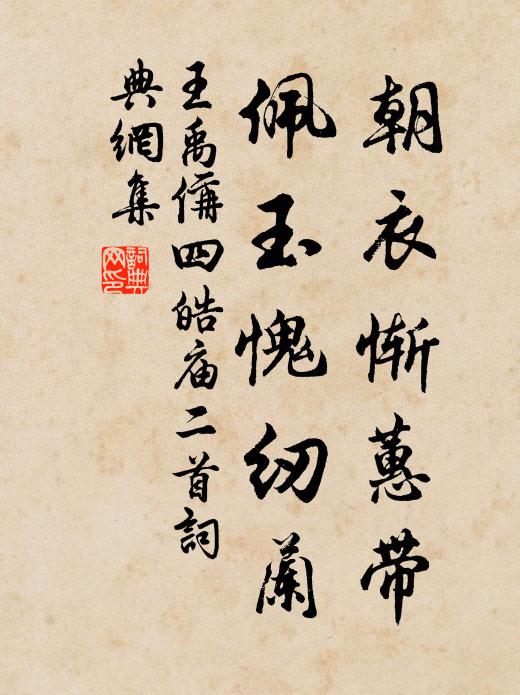 朝衣惭蕙带
佩玉愧纫蘭
王禹偁四皓庙二首詞
典網集
詞典
网印